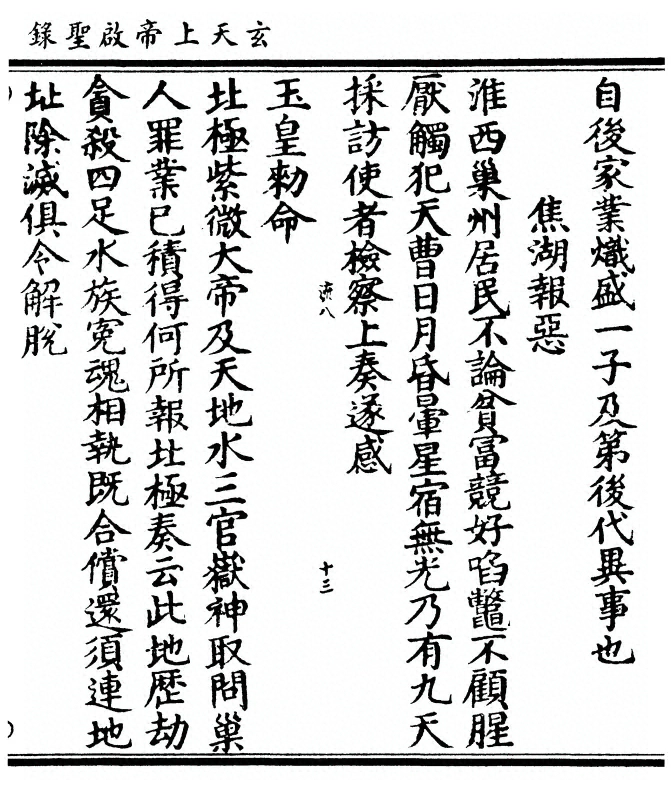 玄天上帝啟聖錄
自後家業熾盛一子及第後代異事也
焦湖報惡
淮西巢州居民不論貧富競好啗鼈不顧腥
厭觸犯天曹日月昏暈星宿無光乃有九天
採訪使者檢察上奏遂感
流八
十三
玉皇勑命
北極紫微大帝及天地水三官嶽神取問巢
人罪業已積得何所報北極奏云此地歷劫
貪殺四足水族冤魂相執既合償還須連地
址除滅俱令解脫